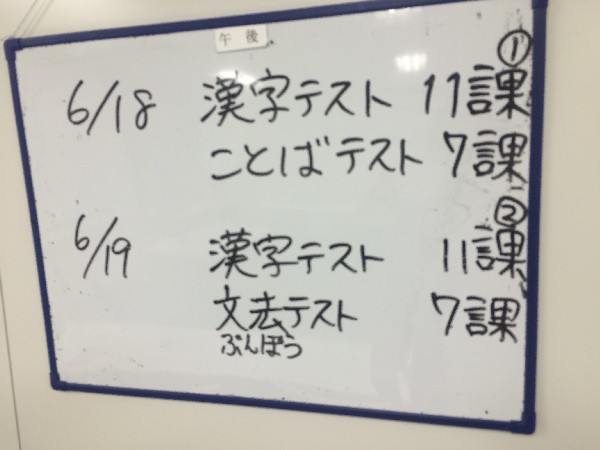 午後
6/18 漢字テスト 11課①
ことばテスト 7課
6/19 漢字テスト 11課②
文法テスト 7課
ぶんぽう